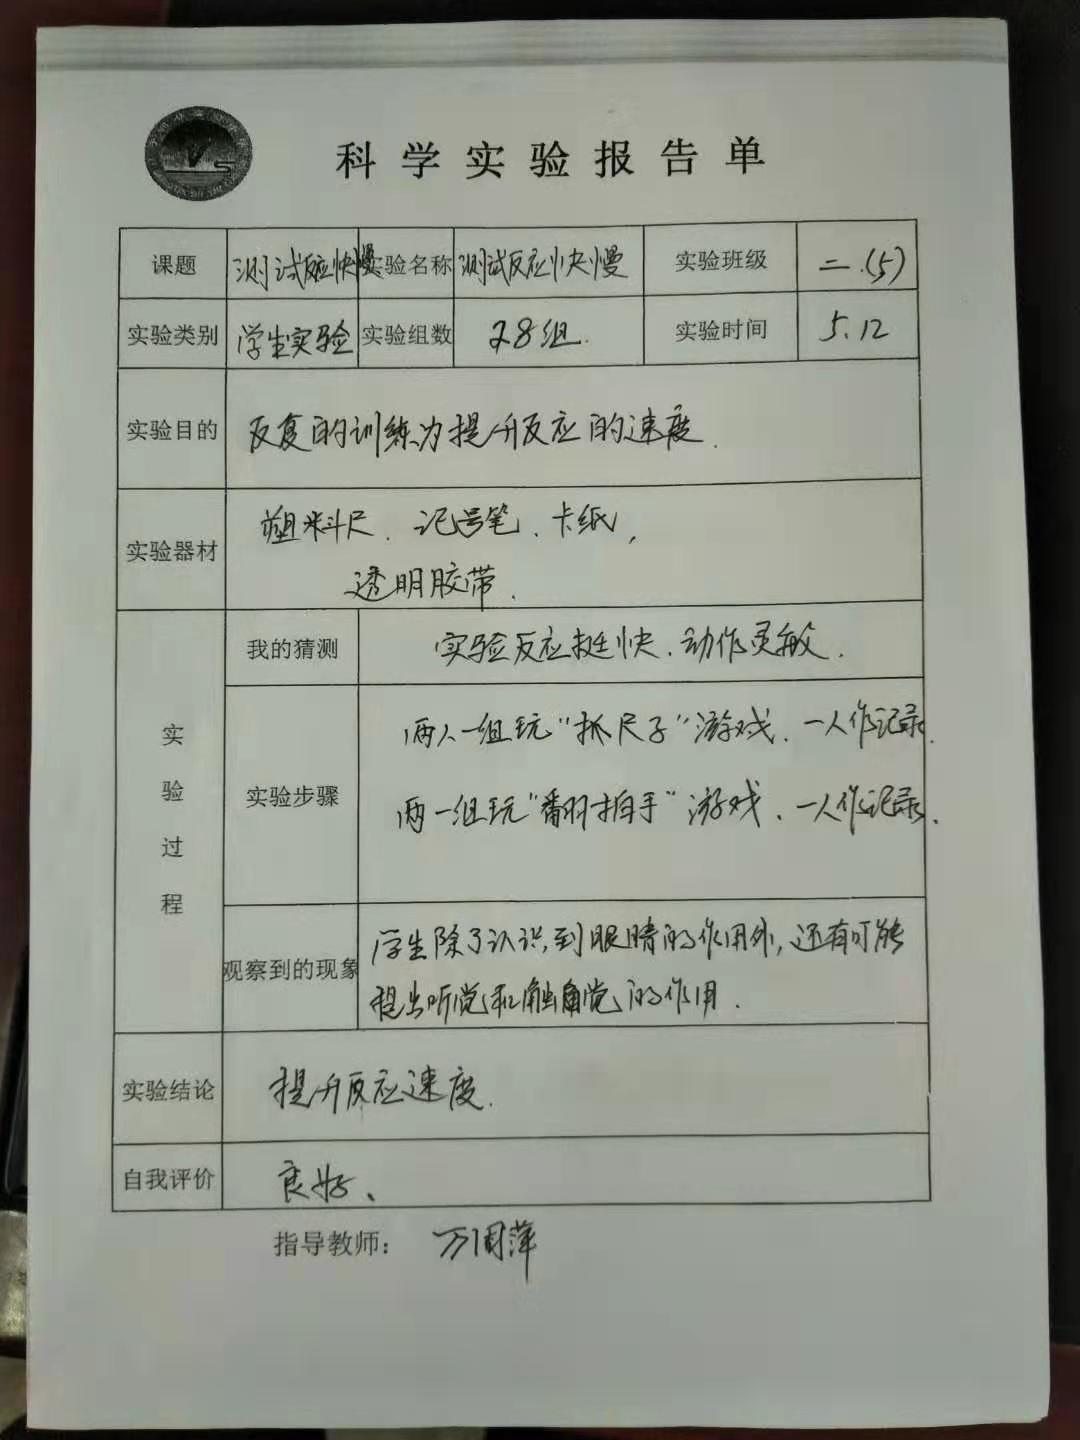 科学实验报告单
课题 测试反应快慢 实验名称 测试反应快慢 实验班级 二.(5)
实验类别 学生实验 实验组数 28组. 实验时间 5.12
实验目的 反复的训练为提升反应的速度.
塑料尺、记号笔、卡纸,
实验器材
透明胶带.
实验过程
我的猜测 实验反应挺快、动作灵敏.
两人一组玩“抓尺子”游戏、一人作记录.
实验步骤
两一组玩“翻拍手”游戏、一人作记录.
学生除了认识到眼睛的作用外,还有可能
观察到的现象
提出听觉和触角觉的作用.
实验结论 提升反应速度.
自我评价 良好、
指导教师: 万